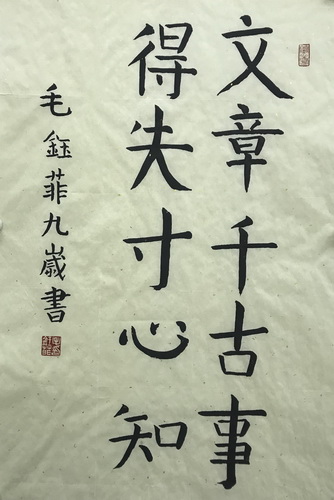 文章千古事
得失寸心知
毛鈺菲九歲書